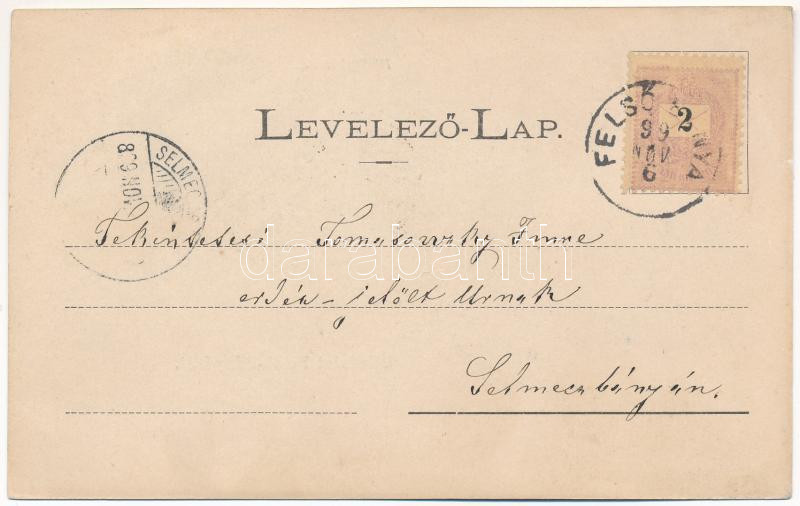 LEVELEZŐ-LAP.
2
FELSŐ BÁNYA
99
NOV.
6
SELMEC
899 NOV
Tekintetes Tomasovszky Imre
erdén-jelölt Urnak
Selmeczbányán.
darabanth